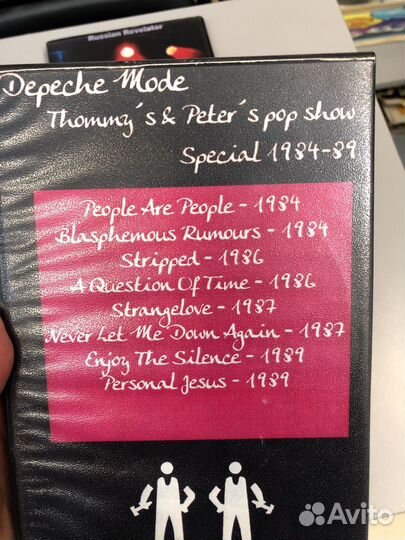 Russian Revelator
Depeche Mode
Thommy´s & Peter´s pop show
Special 1984-89
People Are People - 1984
Blasphemous Rumours - 1984
Stripped - 1986
A Question Of Time - 1986
Strangelove - 1987
Never Let Me Down Again - 1987
Enjoy The Silence - 1989
Personal Jesus - 1989
Avito